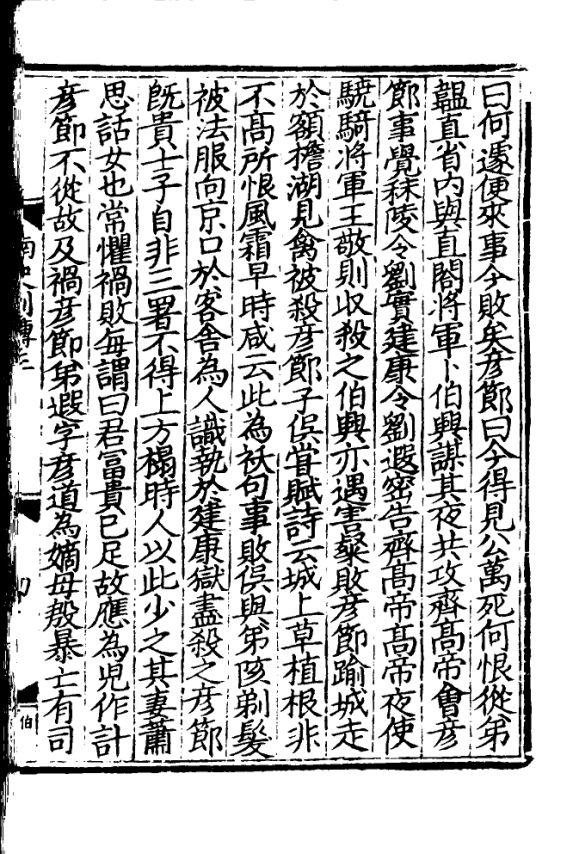 曰何遽便來事今敗矣彦節曰今得見公萬死何恨從弟
韞直省內與直閤將軍卜伯興謀其夜共攻齊髙帝會彦
節事覺秣陵令劉實建康令劉遐密告齊髙帝髙帝夜使
驍騎將軍王敬則收殺之伯興亦遇害粲敗彦節踰城走
於額擔湖見禽被殺彦節子俁甞賦詩云城上草植根非
不髙所恨風霜早時咸云此為祅句事敗俁與弟陔剃髮
被法服向京口於客舎為人識執於建康獄盡殺之彦節
旣貴士子自非三署不得上方榻時人以此少之其妻蕭
思話女也常懼禍敗每謂曰君富貴已足故應為兒作計
彦節不從故及禍彦節弟遐字彦道為嫡母殷暴亡有司
南史列傳三
伯